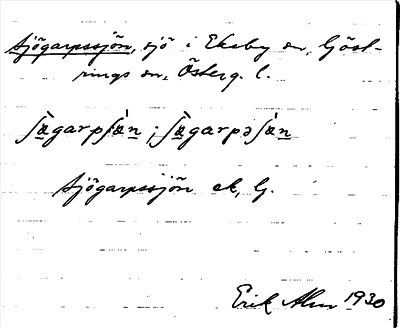 Sjögarpssjön, sjö i Ekeby sn, Göst-
rings sn, Österg. l.
ʃæ̀garpʃæ̀n ; ʃæ̀garpəʃæ̀n
Sjögarpssjön ek, G.
Erik Alm 1930